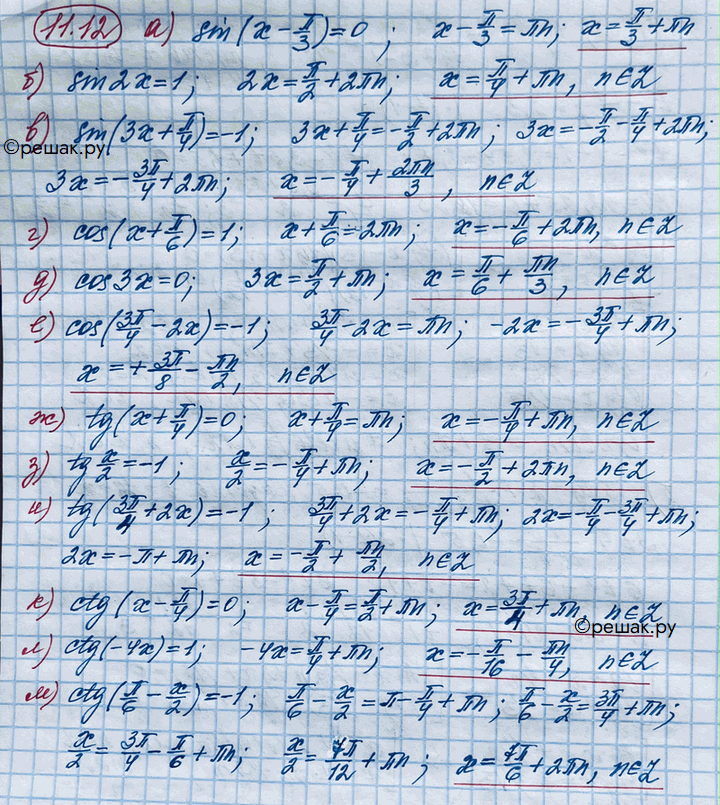 11.12 а) sin(x - π/3) = 0; x - π/3 = πn; x = π/3 + πn
б) sin2x = 1; 2x = π/2 + 2πn; x = π/4 + πn, n∈Z
в) sin(3x + π/4) = -1; 3x + π/4 = -π/2 + 2πn; 3x = -π/2 - π/4 + 2πn;
©решак.ру
3x = -3π/4 + 2πn; x = -π/4 + 2πn/3, n∈Z
г) cos(x + π/6) = 1; x + π/6 = 2πn; x = -π/6 + 2πn, n∈Z
д) cos3x = 0; 3x = π/2 + πn; x = π/6 + πn/3, n∈Z
е) cos(3π/4 - 2x) = -1; 3π/4 - 2x = πn; -2x = -3π/4 + πn;
x = +3π/8 - πn/2, n∈Z
ж) tg(x + π/4) = 0; x + π/4 = πn; x = -π/4 + πn, n∈Z
з) tg x/2 = -1; x/2 = -π/4 + πn; x = -π/2 + 2πn, n∈Z
и) tg(3π/4 + 2x) = -1; 3π/4 + 2x = -π/4 + πn; 2x = -π/4 - 3π/4 + πn;
2x = -π + πn; x = -π/2 + πn/2, n∈Z
к) ctg(x - π/4) = 0; x - π/4 = π/2 + πn; x = 3π/4 + πn, n∈Z
©решак.ру
л) ctg(-4x) = 1; -4x = π/4 + πn; x = -π/16 - πn/4, n∈Z
м) ctg(π/6 - x/2) = -1; π/6 - x/2 = π - π/4 + πn; π/6 - x/2 = 3π/4 + πn;
x/2 = 3π/4 - π/6 + πn; x/2 = 7π/12 + πn; x = 7π/6 + 2πn, n∈Z